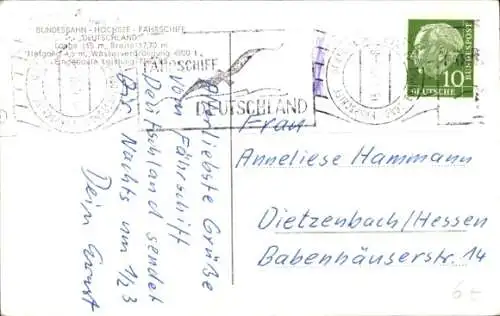 BUNDESBAHN - HOCHSEE - FÄHRSCHIFF
"DEUTSCHLAND"
Länge 115 m, Breite 17,70 m
Tiefgang 4,5 m, Wasserverdrängung
FÄHRSCHIFF
DEUTSCHLAND
DEUTSCHE BUNDESPOST
10
Allerliebste Grüße
vom Fährschiff
Deutschland sendet
Nachts um 1/2 3
Dein Ernst
Frau
Anneliese Hammann
Dietzenbach/Hessen
Babenhäuserstr. 14